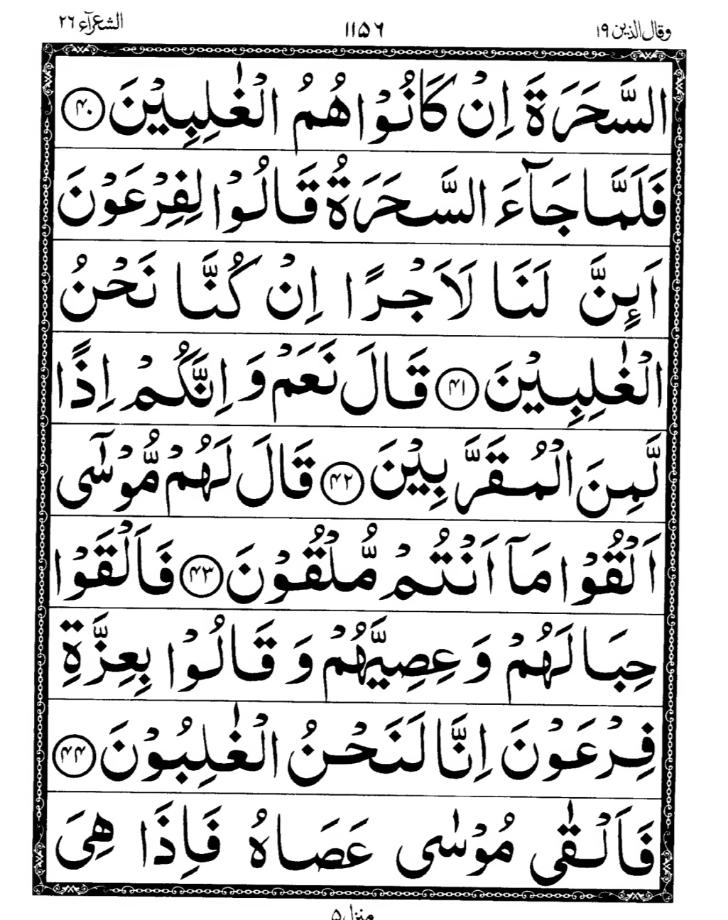 وقال الذین ۱۹ ۱۱۵۶ الشعرآء ۲۶
السَّحَرَةَ اِنْ كَانُوْا هُمُ الْغٰلِبِيْنَ ﴿۴۰﴾
فَلَمَّا جَآءَ السَّحَرَةُ قَالُوْا لِفِرْعَوْنَ
اَئِنَّ لَنَا لَاَجْرًا اِنْ كُنَّا نَحْنُ
الْغٰلِبِيْنَ ﴿۴۱﴾ قَالَ نَعَمْ وَ اِنَّكُمْ اِذًا
لَّمِنَ الْمُقَرَّبِيْنَ ﴿۴۲﴾ قَالَ لَهُمْ مُّوْسٰٓى
اَلْقُوْا مَاۤ اَنْتُمْ مُّلْقُوْنَ ﴿۴۳﴾ فَاَلْقَوْا
حِبَالَهُمْ وَ عِصِيَّهُمْ وَ قَالُوْا بِعِزَّةِ
فِرْعَوْنَ اِنَّا لَنَحْنُ الْغٰلِبُوْنَ ﴿۴۴﴾
فَاَلْقٰى مُوْسٰى عَصَاهُ فَاِذَا هِيَ
منزل ۵